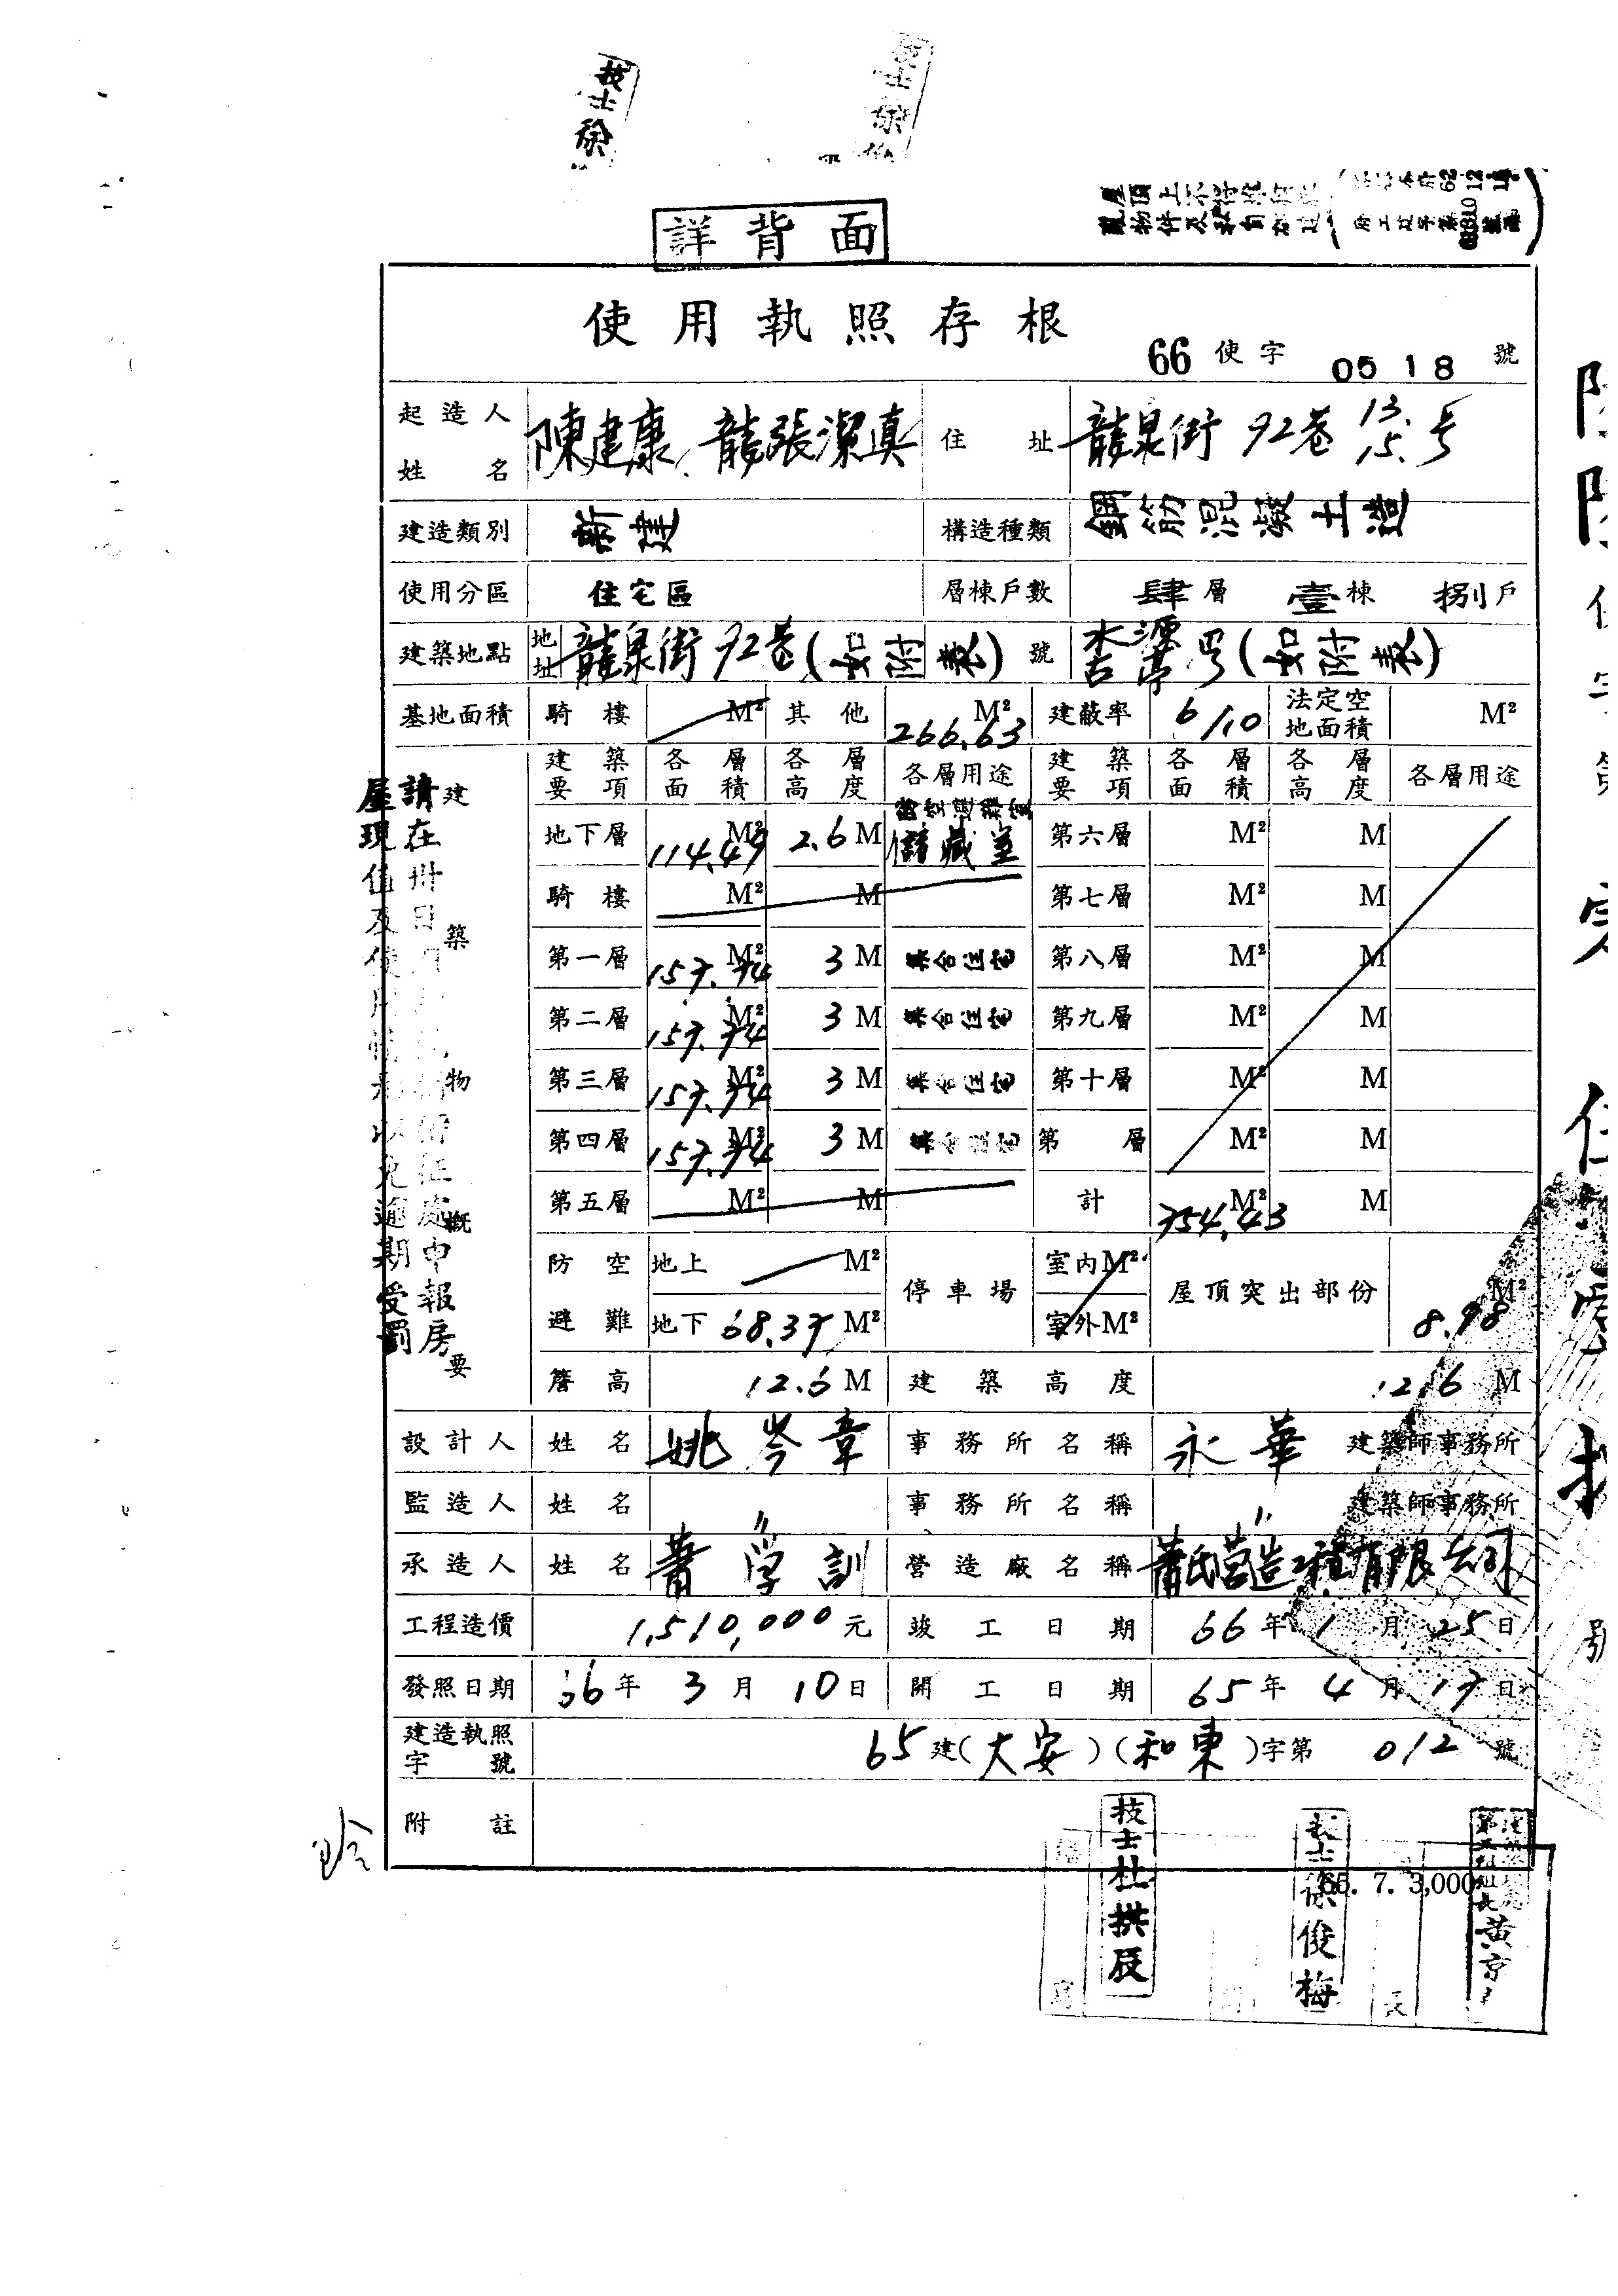 技士徐
詳背面
使用執照存根
66使字0518號
起造人姓名 陳建康、龍張潔真 住址 龍泉街92巷13.15.号
建造類別 新建 構造種類 鋼筋混凝土造
使用分區 住宅區 層棟戶數 肆層壹棟捌戶
建築地點 地址 龍泉街92巷(如附表)號 (如附表)
基地面積 騎樓 M² 其他 266.63 M² 建蔽率 6/10 法定空地面積 M²
建築物概要
建築要項 各層面積 各層高度 各層用途 建築要項 各層面積 各層高度 各層用途
地下層 114.47 M² 2.6 M 防空避難室 儲藏室 第六層 M² M
騎樓 M² M 第七層 M² M
第一層 157.74 M² 3 M 集合住宅 第八層 M² M
第二層 157.74 M² 3 M 集合住宅 第九層 M² M
第三層 157.74 M² 3 M 集合住宅 第十層 M² M
第四層 157.74 M² 3 M 集合住宅 第 層 M² M
第五層 M² M 計 754.43 M² M
防空避難 地上 M² 停車場 室內M² 屋頂突出部份 8.98 M²
地下 68.37 M² 室外M²
簷高 12.6 M 建築高度 12.6 M
設計人 姓名 姚岑章 事務所名稱 永華 建築師事務所
監造人 姓名 〃 事務所名稱 〃 建築師事務所
承造人 姓名 蕭學訓 營造廠名稱 蕭氏营造工程有限公司
工程造價 1,510,000元 竣工日期 66年1月25日
發照日期 66年3月10日 開工日期 65年4月17日
建造執照字號 65建(大安)(和東)字第012號
附註
65. 7. 3,000
技士杜拱辰
技士徐俊梅
黃京